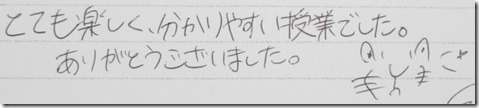 とても楽しく、分かりやすい授業でした。
ありがとうございました。